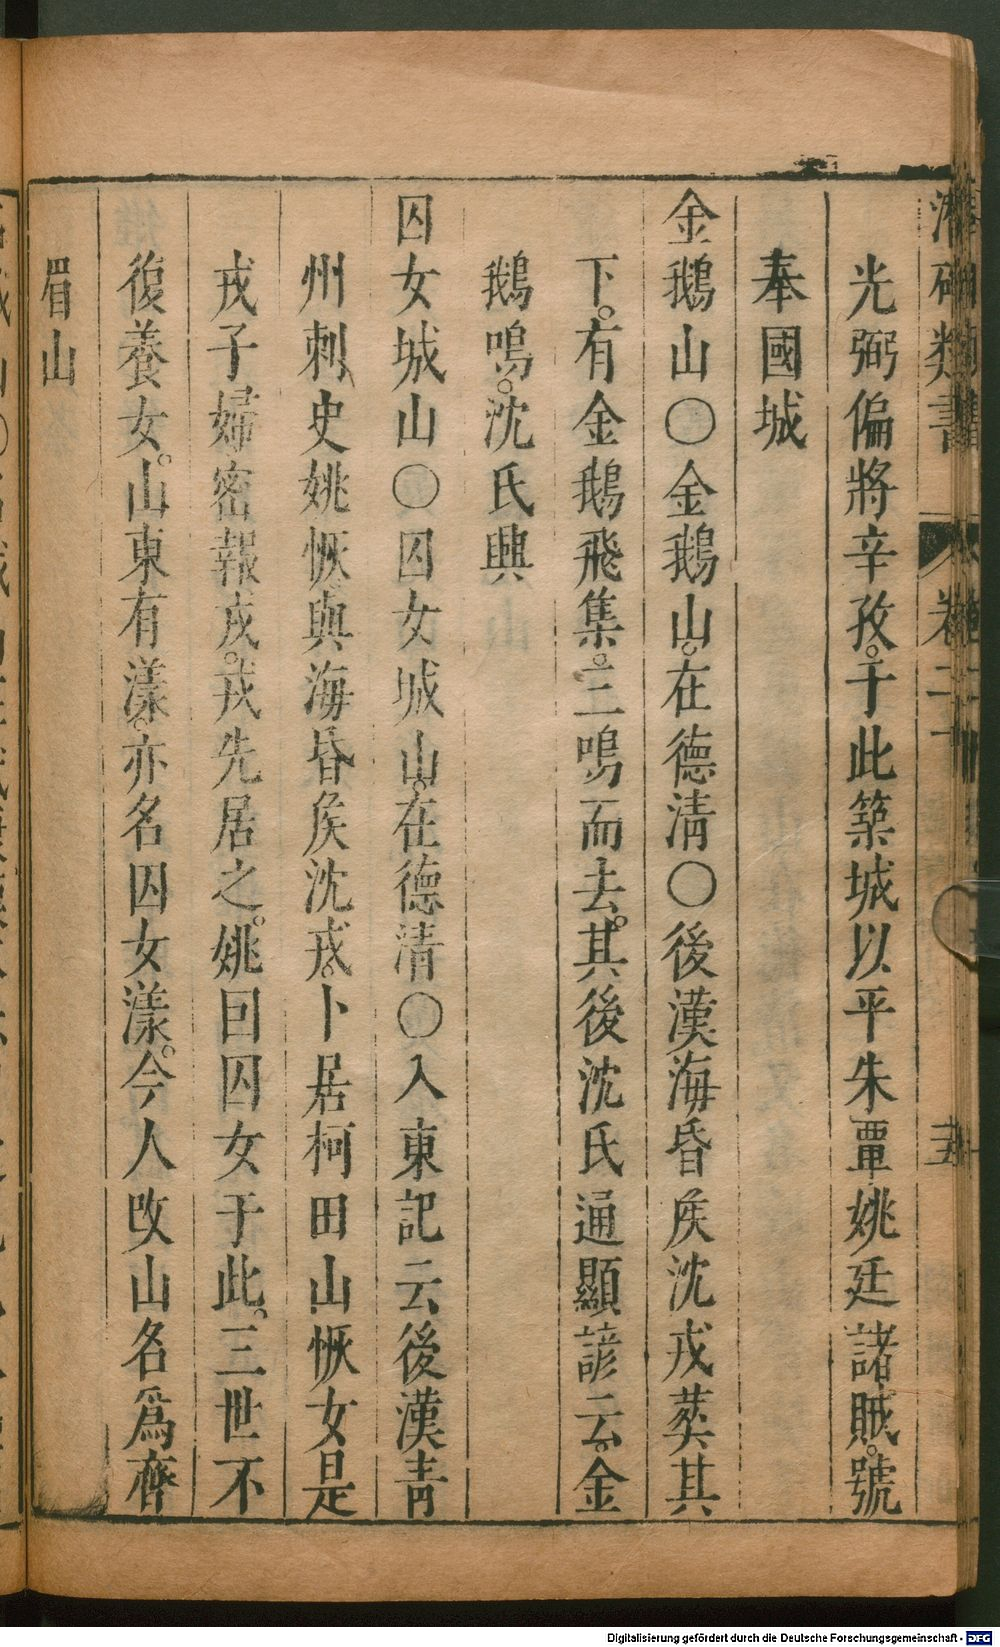 潛確類書 卷二十 十五
光弼偏將辛孜于此築城以平朱覃姚廷諸賊號
奉國城
金鵝山〇金鵝山在德清〇後漢海昏矦沈戎葬其
下有金鵝飛集三鳴而去其後沈氏通顯諺云金
鵝鳴沈氏興
囚女城山〇囚女城山在德清〇入東記云後漢青
州刺史姚恢與海昏矦沈戎卜居柯田山恢女是
戎子婦密報戎戎先居之姚回囚女于此三世不
復養女山東有漾亦名囚女漾今人改山名爲齊
眉山
Digitalisierung gefördert durch die Deutsche Forschungsgemeinschaft - DFG